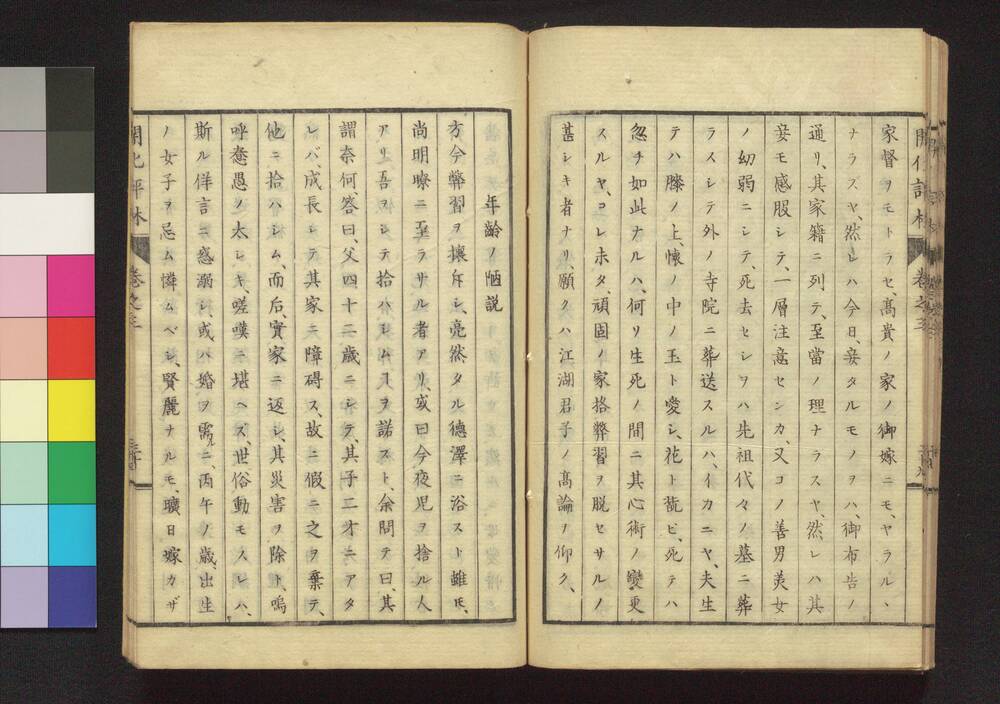 開化評林 巻之三
家督ヲモトラセ、髙貴ノ家ノ御嫁ニモ、ヤラルヽ
ナラズヤ、然ハ今日、妾タルモノヲハ、御布告ノ
通リ、其家籍ニ列テ、至當ノ理ナラスヤ、然レハ其
妾モ感服シテ、一層注意センカ、又コノ善男美女
ノ幼弱ニシテ、死去セシヲハ先祖代々ノ墓ニ葬
ラスシテ外ノ寺院ニ葬送スルハ、イカニヤ、夫生
テハ膝ノ上、懐ノ中ノ玉ト愛シ、花ト翫ビ、死テハ
忽チ如此ナルハ、何リ生死ノ間ニ其心術ノ變更
スルヤ、コレホタ、頑固ノ家格弊習ヲ脱セサルノ
甚シキ者ナリ、願クハ江湖君子ノ髙論ヲ仰ク、
年齢ノ陋説
方今弊習ヲ攘斥シ、亮然タル德澤ニ浴スト雖モ、
尚明暸ニ至ラサル者アリ、或曰今夜児ヲ捨ル人
アリ吾ヲシテ拾ハシムヿヲ諾スト、余問テ曰、其
謂奈何、答曰、父四十二歳ニシテ、其子二才ニアタ
レバ、成長シテ其家ニ障碍ス、故ニ假ニ之ヲ棄テ、
他ニ拾ハシム、而后、實家ニ返シ、其災害ヲ除ト、嗚
呼愚ノ太シキ、嗟嘆ニ堪ヘズ、世俗動モスレハ、
斯ル佯言ニ惑溺シ、或ハ婚ヲ需ルニ、丙午ノ歳、出生
ノ女子ヲ忌ム憐ムベシ、賢麗ナルモ、曠日嫁カザ
開化評林 巻之三